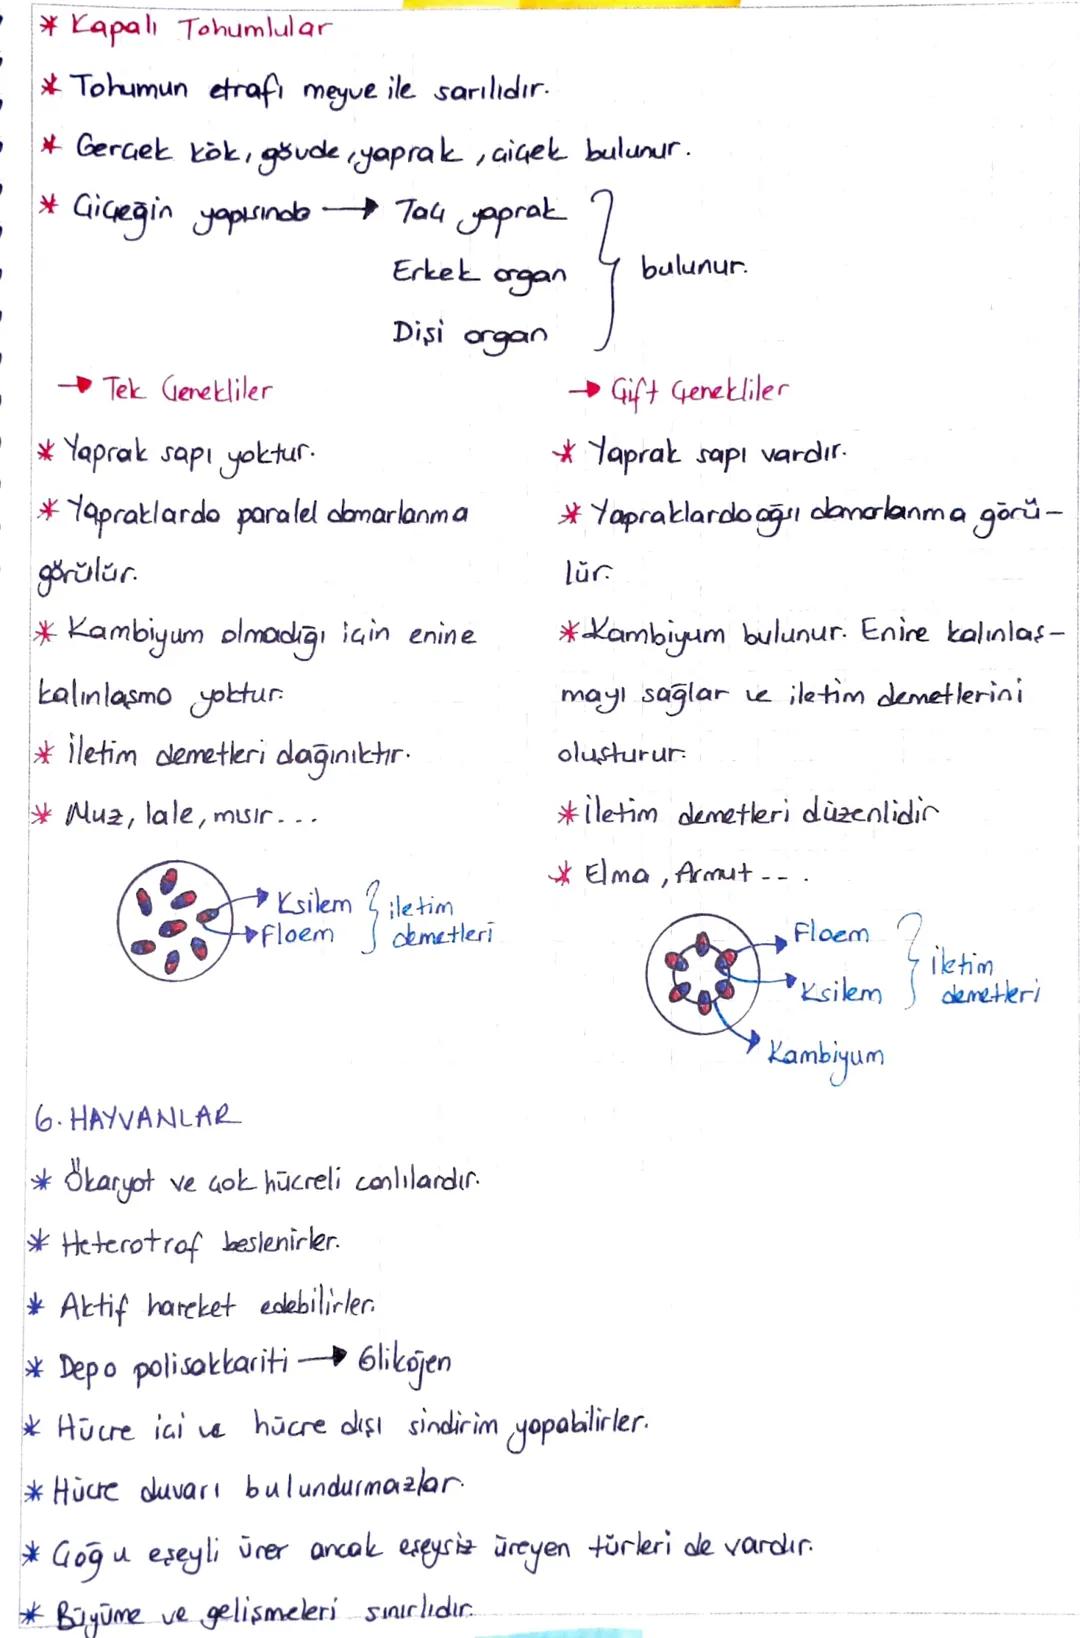 * Kapalı Tohumlular
* Tohumun etrafı meyve ile sarılıdır.
* Gerçek kök, gövde, yaprak, çiçek bulunur.
* Çiçeğin yapısında → Taç yaprak
Erkek organ
bulunur.
Dişi organ
→ Tek Çenekliler
* Yaprak sapı yoktur.
* Yapraklarda paralel damarlanma
görülür.
* Kambiyum olmadığı için enine
kalınlaşma yoktur.
* İletim demetleri dağınıktır.
* Muz, lale, mısır...
Ksilem
Floem
iletim
demetleri
→ Çift Çenekliler
* Yaprak sapı vardır.
* Yapraklarda ağsı damarlanma görü-
lür.
* Kambiyum bulunur. Enine kalınlaş-
mayı sağlar ve iletim demetlerini
oluşturur.
* İletim demetleri düzenlidir
* Elma, Armut...
Floem
Ksilem
iletim
demetleri
Kambiyum
6. HAYVANLAR
* Ökaryot ve çok hücreli canlılardır.
* Heterotrof beslenirler.
* Aktif hareket edebilirler.
* Depo polisakkariti → Glikojen
* Hücre içi ve hücre dışı sindirim yapabilirler.
* Hücre duvarı bulundurmazlar.
* Çoğu eşeyli ürer ancak eşeysiz üreyen türleri de vardır.
* Büyüme ve gelişmeleri sınırlıdır.